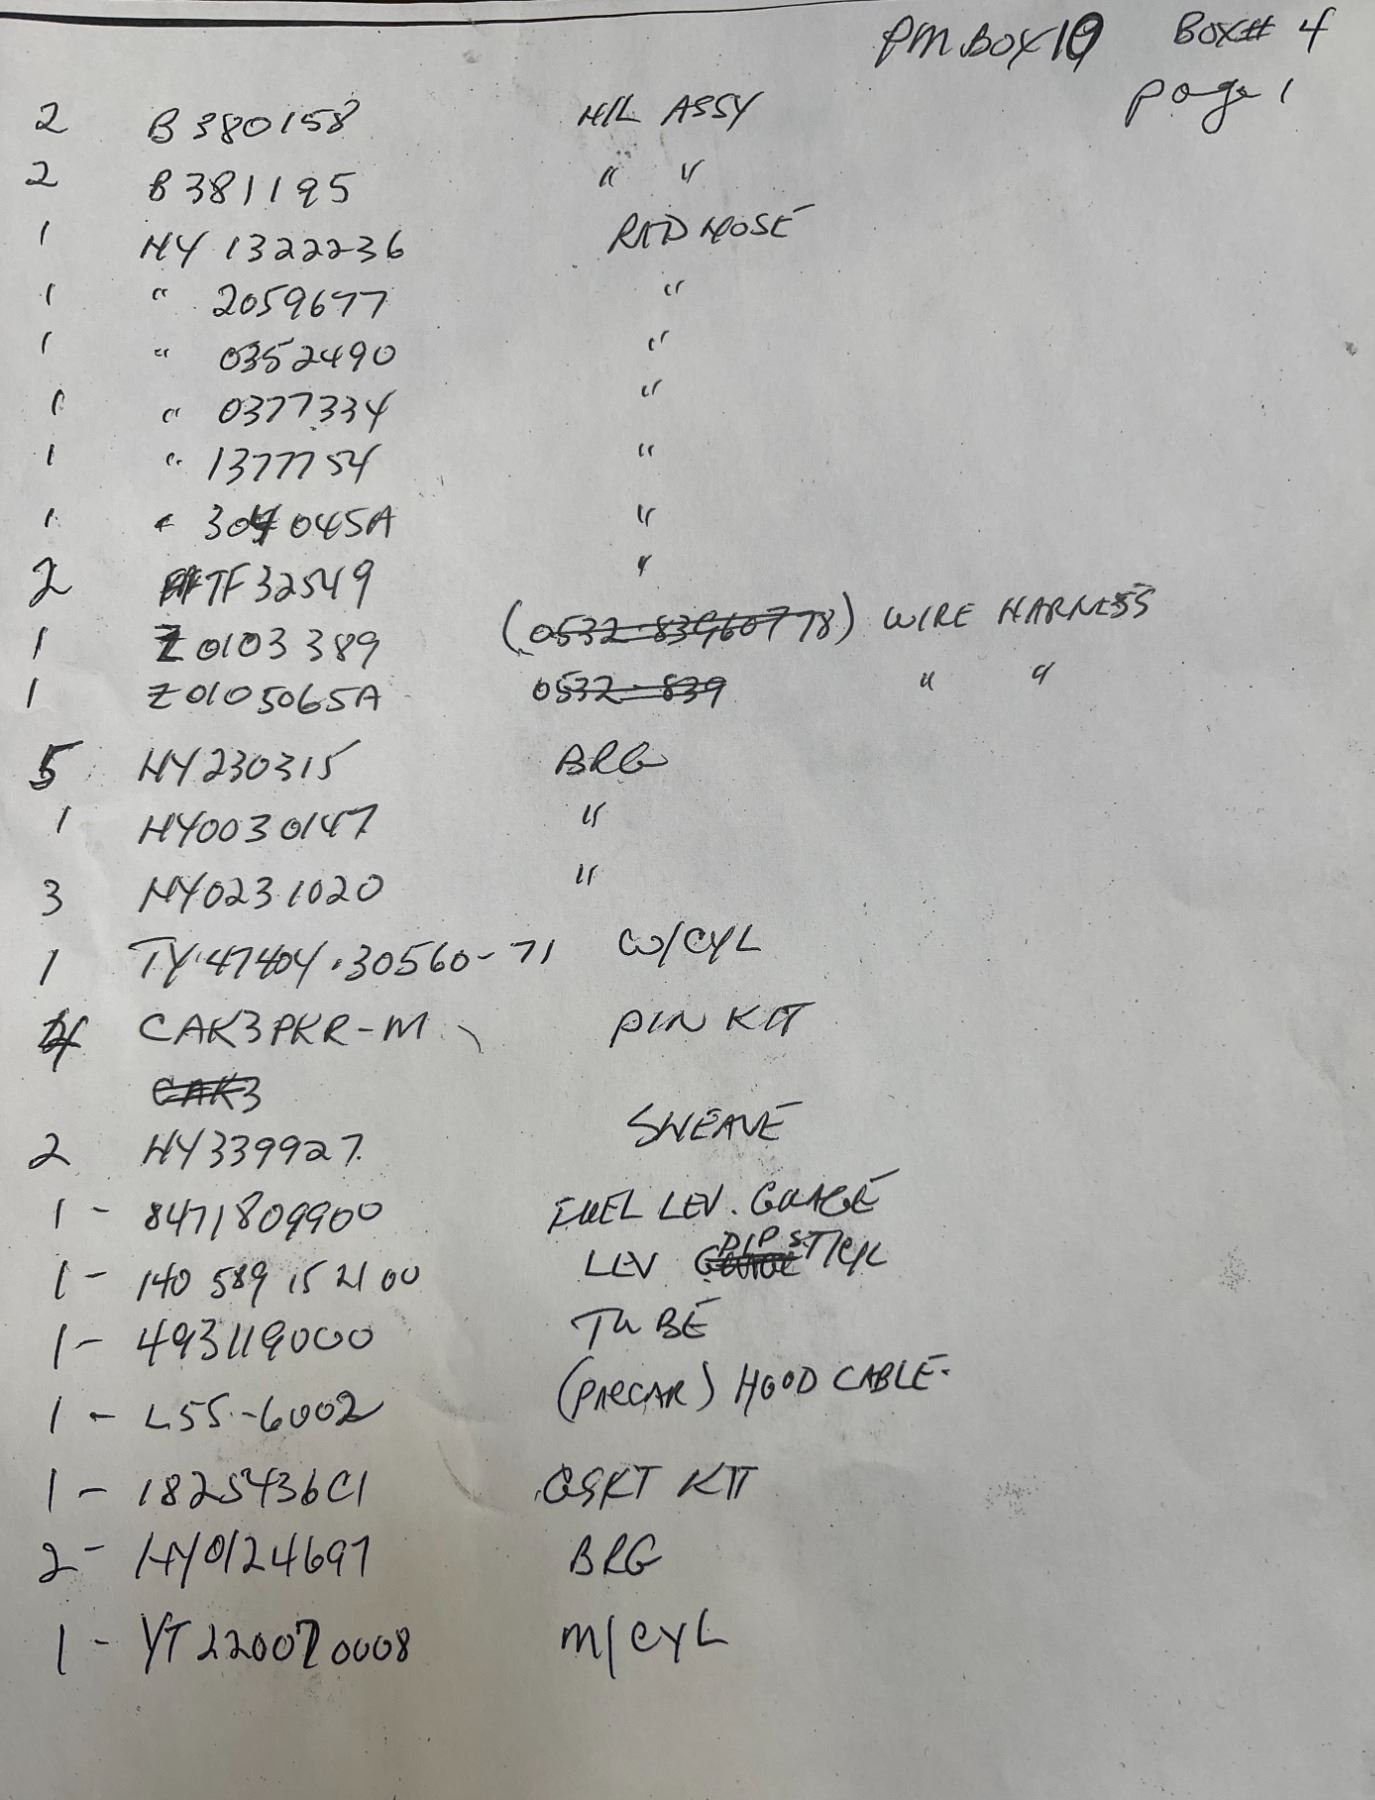 PM BOX 10 BOX# 4
page 1
2 B380158 H/L ASSY
2 B381195 " "
1 HY 1322236 RAD HOSE
1 " 2059677 "
1 " 0352490 "
1 " 0377334 "
1 " 1377754 "
1 " 304045A "
2 TF32549 "
1 Z0103389 (0532-83960778) WIRE HARNESS
1 Z0105065A 0532-839 " "
5 HY230315 BRG
1 HY0030147 "
3 HY0231020 "
1 TY47404.30560-71 W/CYL
CAK3PKR-M PIN KIT
CAK3
2 HY339927. SHEAVE
1 - 8471809900 FUEL LEV. GUAGE
1 - 140 589 15 21 00 LEV DIP STICK
1 - 493119000 TUBE
1 - L55-6002 (PARCAR) HOOD CABLE-
1 - 1825436C1 GSKT KIT
2 - HY0124697 BRG
1 - YT220070008 M/CYL